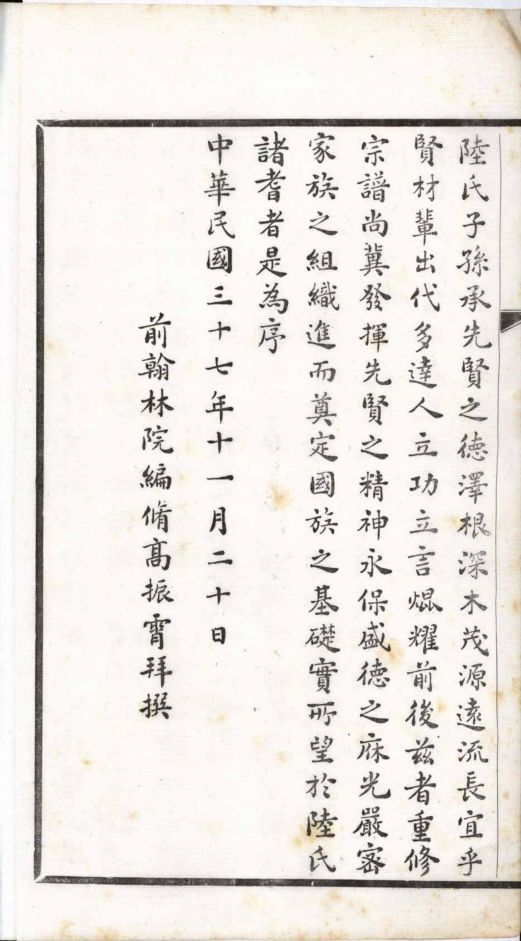 陸氏子孫承先賢之德澤根深木茂源遠流長宜乎
賢材輩出代多達人立功立言焜耀前後茲者重修
宗譜尚冀發揮先賢之精神永保盛德之庥光嚴密
家族之組織進而奠定國族之基礎實所望於陸氏
諸耆者是為序
中華民國三十七年十一月二十日
前翰林院編脩高振霄拜撰